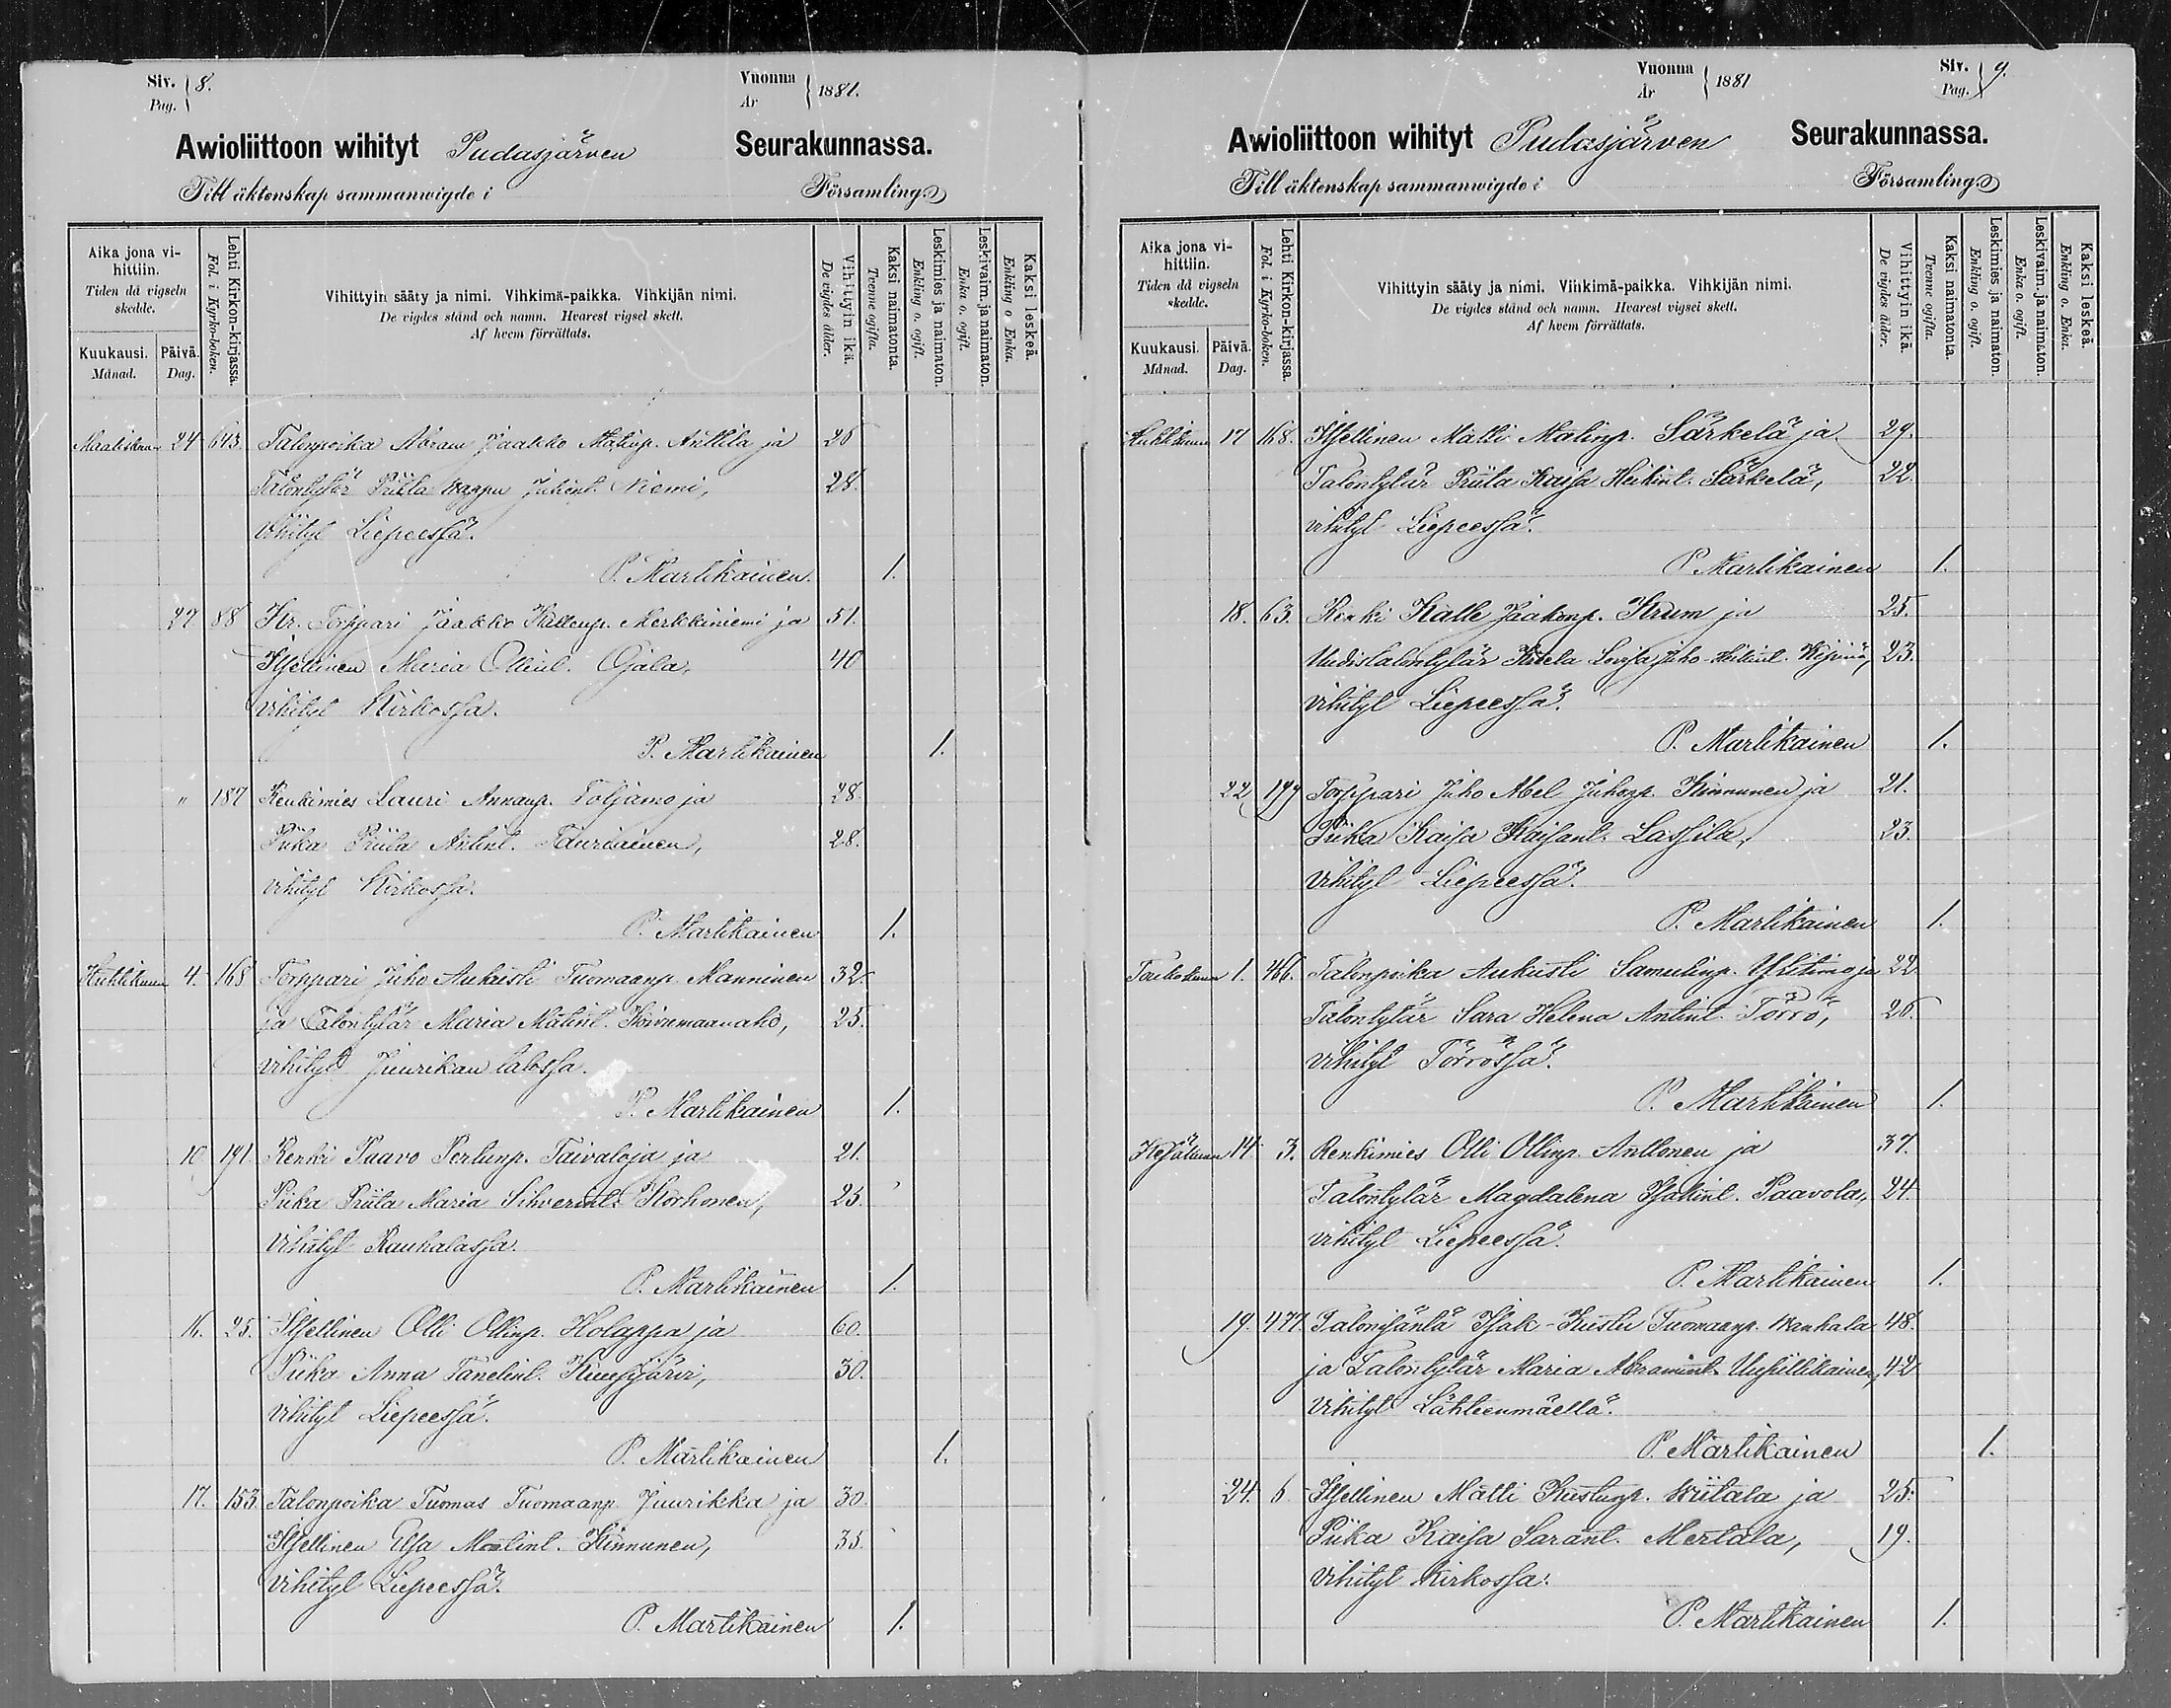 Siv. 8.
Pag.
Vuonna 1881.
År
Awioliittoon wihityt Pudasjärven Seurakunnassa.
Till äktenskap sammanwigde i Församling.
Aika jona vihittiin.
Tiden då vigseln skedde.
Kuukausi.
Månad.
Päivä.
Dag.
Lehti Kirkon-kirjassa.
Fol. i Kyrko-boken.
Vihittyin sääty ja nimi. Vihkimä-paikka. Vihkijän nimi.
De vigdes stånd och namn. Hvarest vigsel skett.
Af hvem förrättats.
Vihittyin ikä.
De vigdes ålder.
Kaksi naimatonta.
Tvenne ogifta.
Leskimies ja naimaton.
Enkling o. ogift.
Leskivaim. ja naimaton.
Enka o. ogift.
Kaksi leskeä.
Enkling o Enka.
Maaliskuu 24 643. Talonpoika Abram Jaakko Matinp. Anttila ja
Talontytär Priita Wappu Juhont. Niemi, 28.
vihityt Liepeessä.
P. Martikainen. 1.
27 88 Jaakko Kallenp. Merkkiniemi ja 51.
Itsellinen Maria Ollint. Ojala, 40
vihityt Kirkossa.
P. Martikainen 1.
" 187 Renkimies Lauri Annanp. Toljamo ja 28.
Piika Priita Antint. Tauriainen, 28.
vihityt Kirkossa.
P. Martikainen 1.
Huhtikuun 4. 168 Torppari Juho Aukusti Tuomaanp. Manninen 32.
ja Talontytär Maria Matint. Koivumaanaho, 25.
vihityt Juurikan talossa.
P. Martikainen 1.
10. 191 Renki Paavo Pertunp. Taivaloja ja 21.
Piika Priita Maria Sihverint. Korhonen, 25.
vihityt Rauhalassa.
P. Martikainen 1.
16. 25. Itsellinen Olli Ollinp. Holappa ja 60.
Piika Anna Tanelint. Kuusijärvi, 30.
vihityt Liepeessä.
P. Martikainen 1.
17. 153. Talonpoika Tuomas Tuomaanp. Juurikka ja 30.
Itsellinen Elsa Matint. Kinnunen, 35.
vihityt Liepeessä.
P. Martikainen 1.
Vuonna 1881
År
Siv. 9.
Pag.
Awioliittoon wihityt Pudasjärven Seurakunnassa.
Till äktenskap sammanwigde i Församling.
Aika jona vihittiin.
Tiden då vigseln skedde.
Kuukausi.
Månad.
Päivä.
Dag.
Lehti Kirkon-kirjassa.
Fol. i Kyrko-boken.
Vihittyin sääty ja nimi. Vihkimä-paikka. Vihkijän nimi.
De vigdes stånd och namn. Hvarest vigsel skett.
Af hvem förrättats.
Vihittyin ikä.
De vigdes ålder.
Kaksi naimatonta.
Tvenne ogifta.
Leskimies ja naimaton.
Enkling o. ogift.
Leskivaim. ja naimaton.
Enka o. ogift.
Kaksi leskeä.
Enkling o. Enka.
Huhtikuun 17 168. Itsellinen Matti Matinp. Särkelä ja 29.
Talontytär Priita Kaisa Heikint. Särkelä, 22.
vihityt Liepeessä.
P. Martikainen 1.
18. 63. Renki Kalle Jaakonp. Krum ja 25.
Uudistalontytär Lovisa Juho Heikint. 23.
vihityt Liepeessä.
P. Martikainen 1.
22 199 Torppari Juho Abel Juhonp. Kinnunen ja 21.
Piika Kaisa Kaisant. Lassila, 23.
vihityt Liepeessä.
P. Martikainen 1.
Toukokuun 1. 466. Talonpoika Aukusti Samulinp. Ylitimo ja 22
Talontytär Sara Helena Antint. Törrö, 26.
vihityt Törrössä.
P. Martikainen 1.
Kesäkuun 14. 3. Renkimies Olli Ollinp. Anttonen ja 37.
Talontytär Magdalena Isakint. Paavola, 24.
vihityt Liepeessä.
P. Martikainen 1.
19. 477. Talonisäntä Isak-Kustu Tuomaanp. Wankala 48.
ja Talontytär Maria Abramint. 42
vihityt Lähteenmäellä.
P. Martikainen 1.
24. 6 Itsellinen Matti Kustunp. Wiitala ja 25.
Piika Kaisa Sarant. Mertala, 19.
vihityt Kirkossa.
P. Martikainen 1.